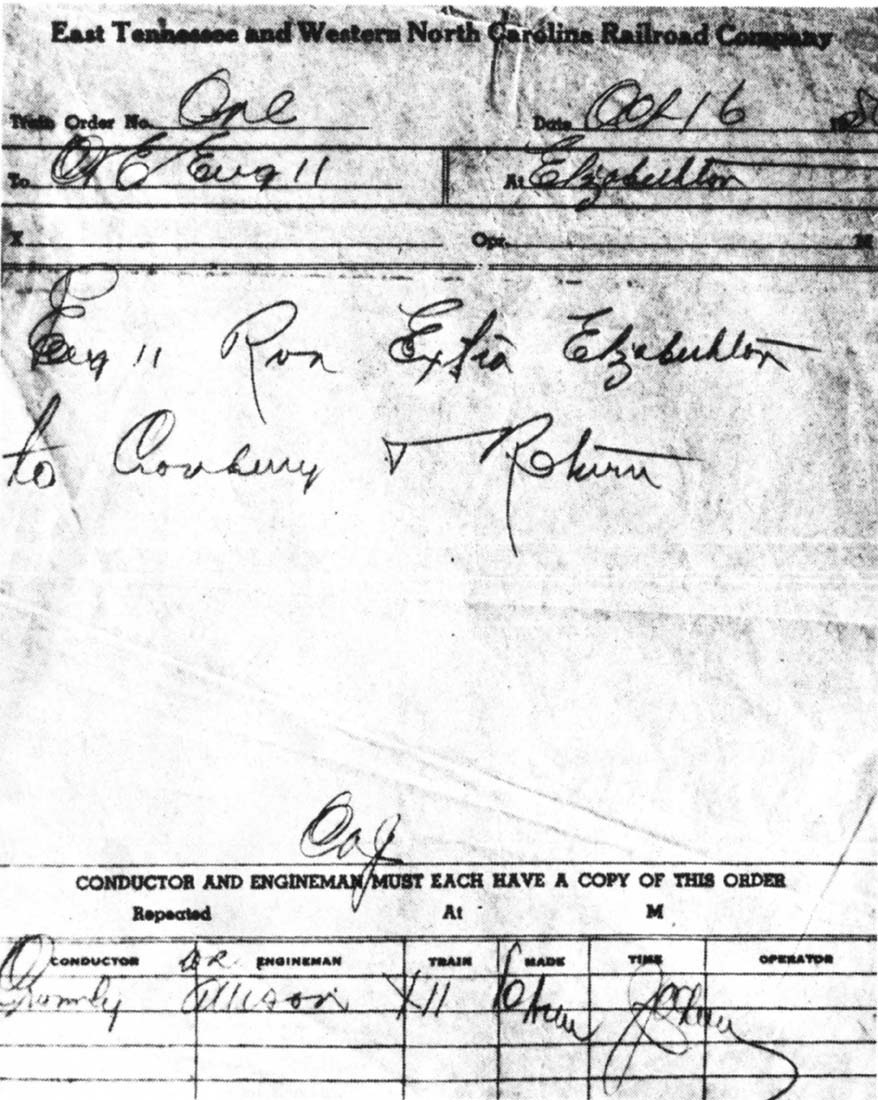 East Tennessee and Western North Carolina Railroad Company
Train Order No. One Date Oct 16 19
To C & E Eng 11 At Elizabethton
X Opr. M
Eng 11 Run Extra Elizabethton
to Cranberry & Return
CONDUCTOR AND ENGINEMAN MUST EACH HAVE A COPY OF THIS ORDER
Repeated At M
CONDUCTOR ENGINEMAN TRAIN MADE TIME OPERATOR
Allison X11